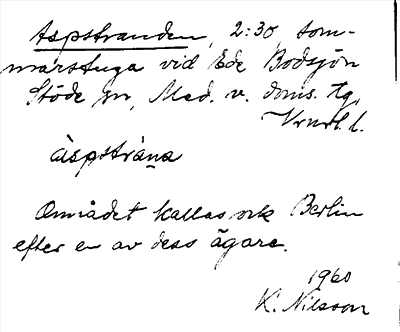 Aspstranden, 2:30, som-
marstuga vid Ede Bodsjön
Stöde sn, Med. v. doms. tg,
Vrnrl. l.
àspstráṇa
Området kallas ock Berlin
efter en av dess ägare.
1960
K. Nilsson